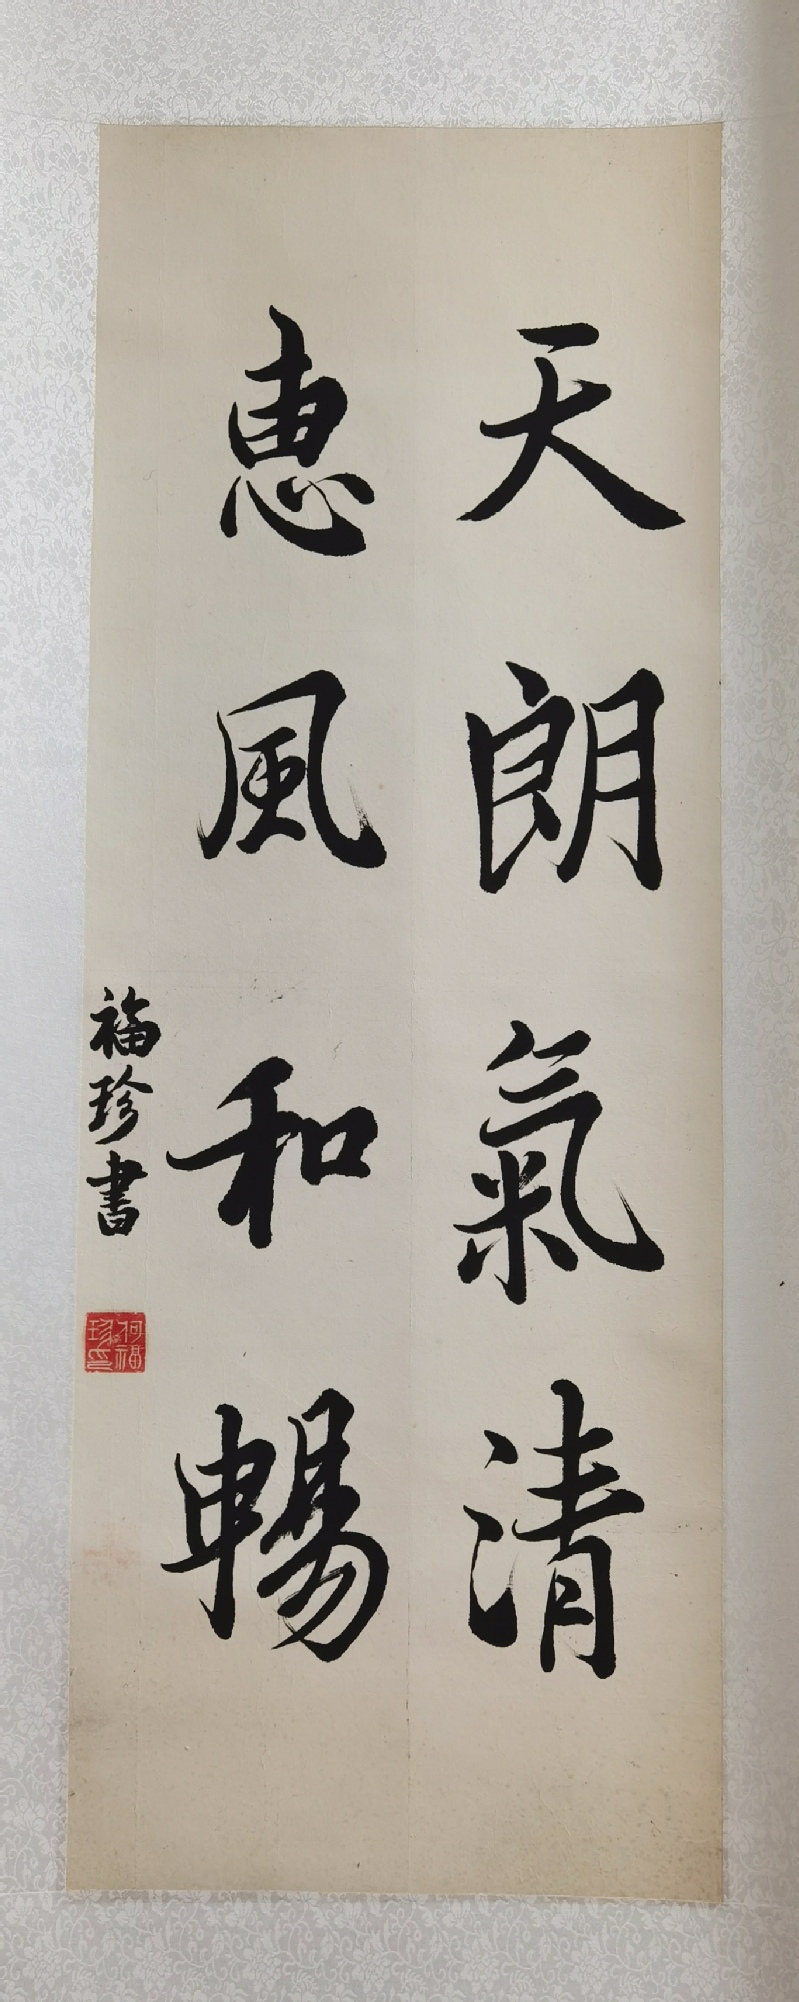 天朗氣清
惠風和暢
福珍書
何福珍印